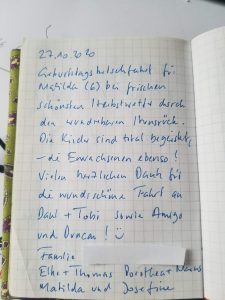 27.10.2020
Geburtstagskutschfahrt für
Matilda (6) bei frischen
schönsten Herbstwetter durch
den wunderbaren Hunsrück.
Die Kinder sind total begeistert
– die Erwachsenen ebenso!
Vielen herzlichen Dank für
die wunderschöne Fahrt an
Dani + Tobi sowie Amigo
und Duncan! ☺
Familie
Elke + Thomas Dorothea +
Matilda und Josefine